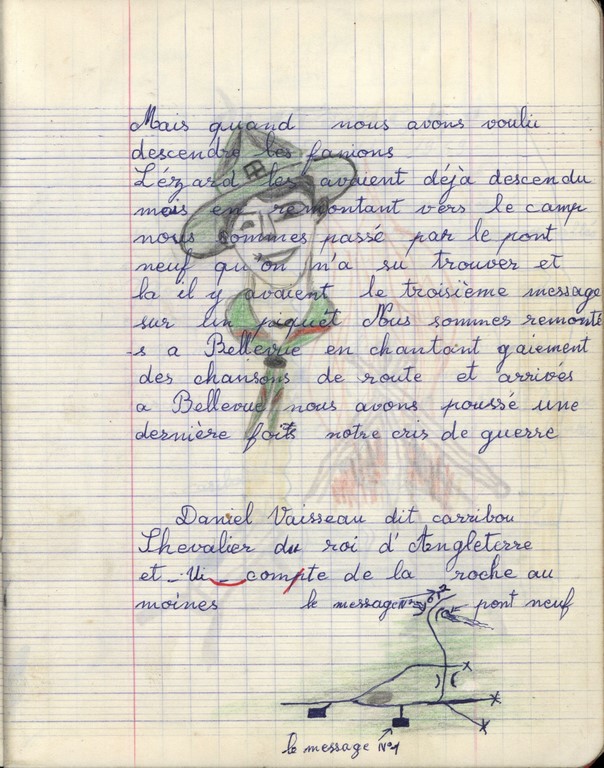 Mais quand nous avons voulu
descendre les fanions
Lézard les avaient déjà descendu
mais en remontant vers le camp
nous sommes passé par le pont
neuf qu'on n'a su trouver et
la il y avaient le troisième message
sur un piquet Nus sommes remonté
-s a Bellevue en chantant gaiement
des chansons de route et arrivés
a Bellevue nous avons poussé une
dernière foits notre cris de guerre
Daniel Vaisseau dit carribou
Chevalier du roi d'Angleterre
et Vi compte de la roche au
moines
le message N°2
pont neuf
le message N°1